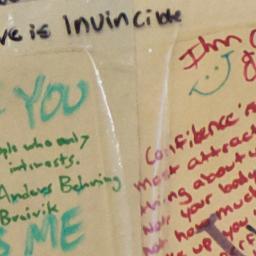 ve is Invincible
YOU
ple who only
interests.
Anders Behring
Breivik
ME
Confidence is
most attract
thing about
Not your body
not how much